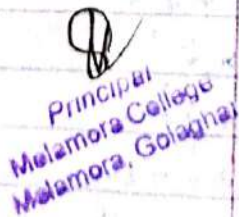 Principal
Melamora College
Melamora, Golaghat